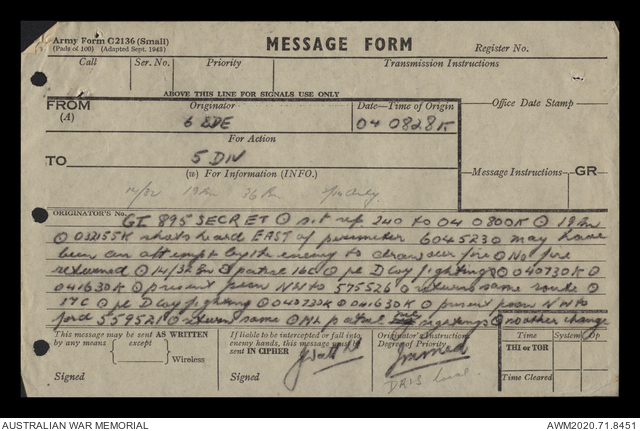 Army Form C2136 (Small)
(Pads of 100) (Adapted Sept. 1943)
MESSAGE FORM
Register No.
Call Ser. No. Priority Transmission Instructions
ABOVE THIS LINE FOR SIGNALS USE ONLY
FROM (A) Originator Date—Time of Origin Office Date Stamp
6 BDE 04 0828K
For Action
TO 5 DIV
(W) For Information (INFO.) Message Instructions GR
14/32 19 Bn 36 Bn
ORIGINATOR'S No. GI 895 SECRET ⊙ sit rep 240 to 04 0800K ⊙ 19 Bn
⊙ 032155K shots heard EAST of perimeter 604523 ⊙ may have
been an attempt by the enemy to draw our fire ⊙ No fire
returned ⊙ 14/32 Bn ⊙ patrol 16C ⊙ pl D Coy fighting ⊙ 040730K ⊙
041630K ⊙ present posn NW to 575526 ⊙ return same route ⊙
17C ⊙ pl D Coy fighting ⊙ 040730K ⊙ 041630K ⊙ present posn NW to
ford 559521 ⊙ return same ⊙ patrol sightings ⊙ no other change
This message may be sent AS WRITTEN
by any means except { } Wireless
Signed
If liable to be intercepted or fall into
enemy hands, this message must be
sent IN CIPHER
Signed
Originator's Instructions
Degree of Priority
Immed
DRLS
Time System Op
THI or TOR
Time Cleared
AUSTRALIAN WAR MEMORIAL
AWM2020.71.8451